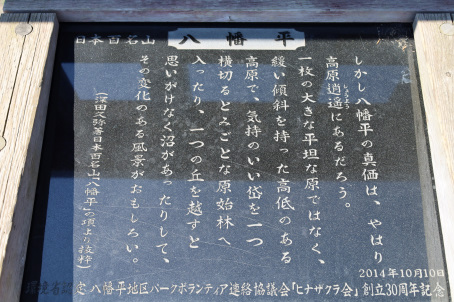 日本百名山
八幡平
しかし八幡平の真価は、やはり
高原逍遥にあるだろう。
一枚の大きな平坦な原ではなく、
緩い傾斜を持った高低のある
高原で、気持のいい岱を一つ
横切るとみごとな原始林へ
入ったり、一つの丘を越すと
思いがけなく沼があったりして、
その変化のある風景がおもしろい。
(深田久弥著日本百名山「八幡平」の項より抜粋)
2014年10月10日
八幡平地区パークボランティア連絡協議会「ヒナザクラ会」創立30周年記念